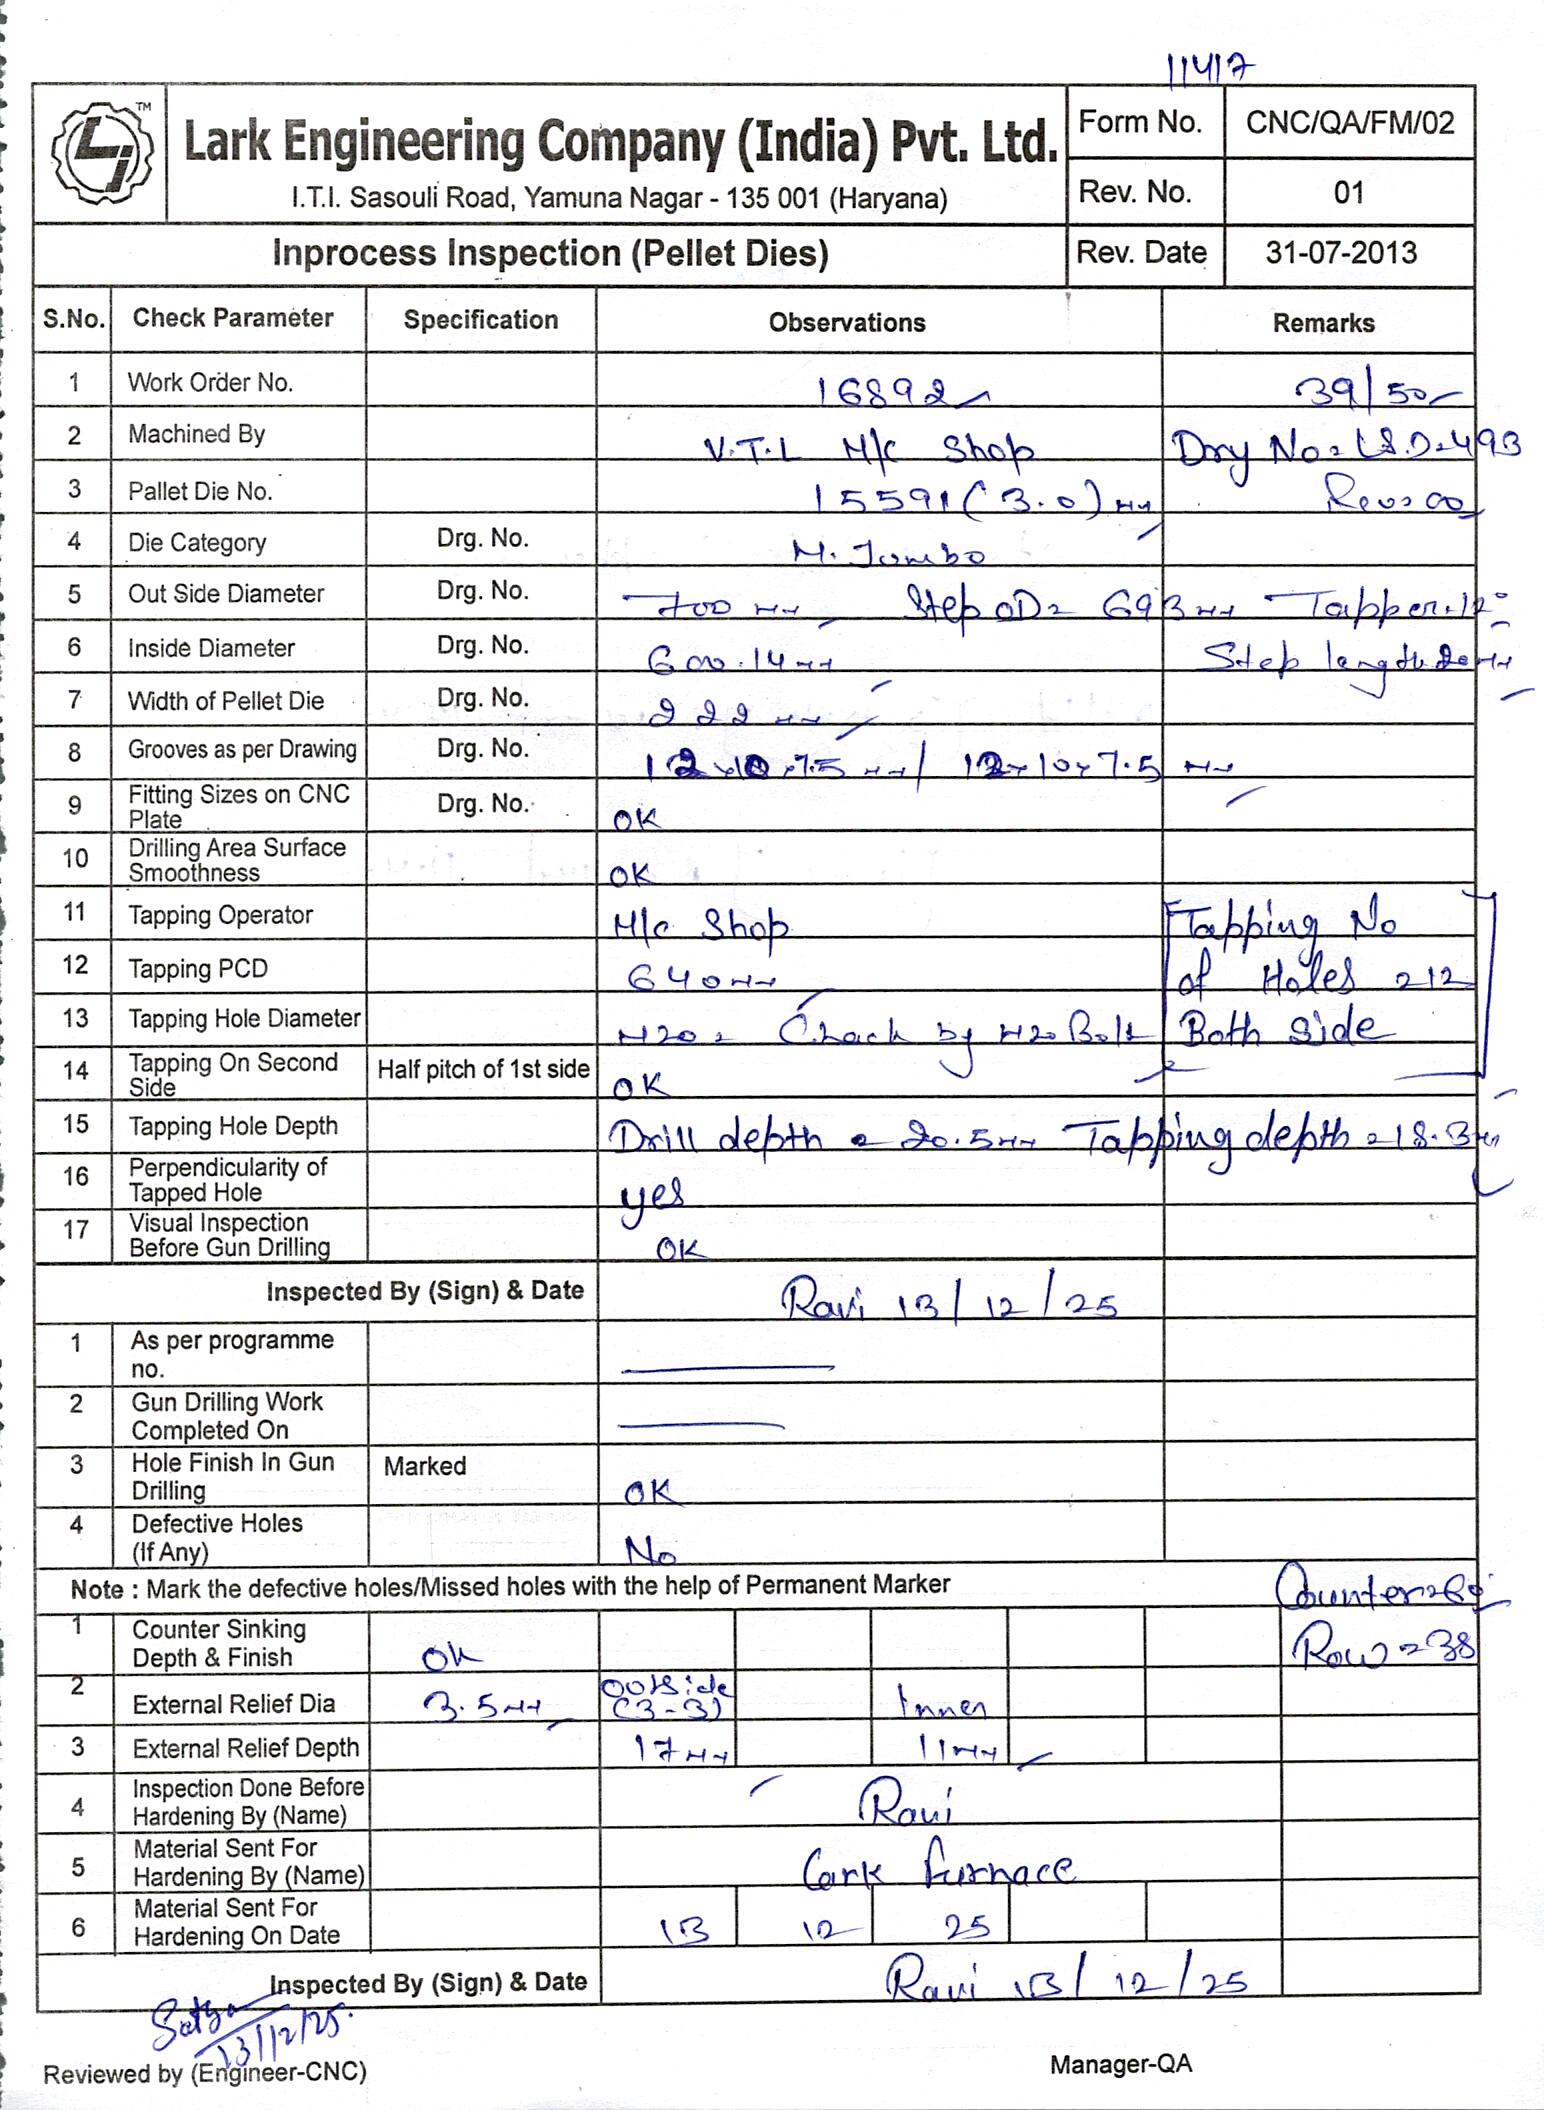 11417
Lark Engineering Company (India) Pvt. Ltd.
I.T.I. Sasouli Road, Yamuna Nagar - 135 001 (Haryana)
Form No. CNC/QA/FM/02
Rev. No. 01
Inprocess Inspection (Pellet Dies) Rev. Date 31-07-2013
S.No. Check Parameter Specification Observations Remarks
1 Work Order No. 16892 39/50
2 Machined By V.T.L M/c Shop Drg No = L.S.D-493
3 Pallet Die No. 15591 (3.0) mm Rev=00
4 Die Category Drg. No. M. Jumbo
5 Out Side Diameter Drg. No. 700 mm Step OD = 693 mm Tapper-12°
6 Inside Diameter Drg. No. 600.14 mm Step length 20 mm
7 Width of Pellet Die Drg. No. 222 mm
8 Grooves as per Drawing Drg. No. 12x10x7.5 mm / 12x10x7.5 mm
9 Fitting Sizes on CNC Plate Drg. No. OK
10 Drilling Area Surface Smoothness OK
11 Tapping Operator M/c Shop Tapping No
12 Tapping PCD 640 mm of Holes = 12
13 Tapping Hole Diameter M20 = Chack by M20 Bolt Both Side
14 Tapping On Second Side Half pitch of 1st side OK
15 Tapping Hole Depth Drill depth = 20.5 mm Tapping depth = 18.3 mm
16 Perpendicularity of Tapped Hole yes
17 Visual Inspection Before Gun Drilling OK
Inspected By (Sign) & Date Ravi 13/12/25
1 As per programme no.
2 Gun Drilling Work Completed On
3 Hole Finish In Gun Drilling Marked OK
4 Defective Holes (If Any) No
Note : Mark the defective holes/Missed holes with the help of Permanent Marker
1 Counter Sinking Depth & Finish OK Row = 38
2 External Relief Dia 3.5 mm Outside (3-3) Inner
3 External Relief Depth 17 mm 11 mm
4 Inspection Done Before Hardening By (Name) Ravi
5 Material Sent For Hardening By (Name) Lark Furnace
6 Material Sent For Hardening On Date 13 12 25
Inspected By (Sign) & Date Ravi 13/12/25
13/12/25.
Reviewed by (Engineer-CNC) Manager-QA